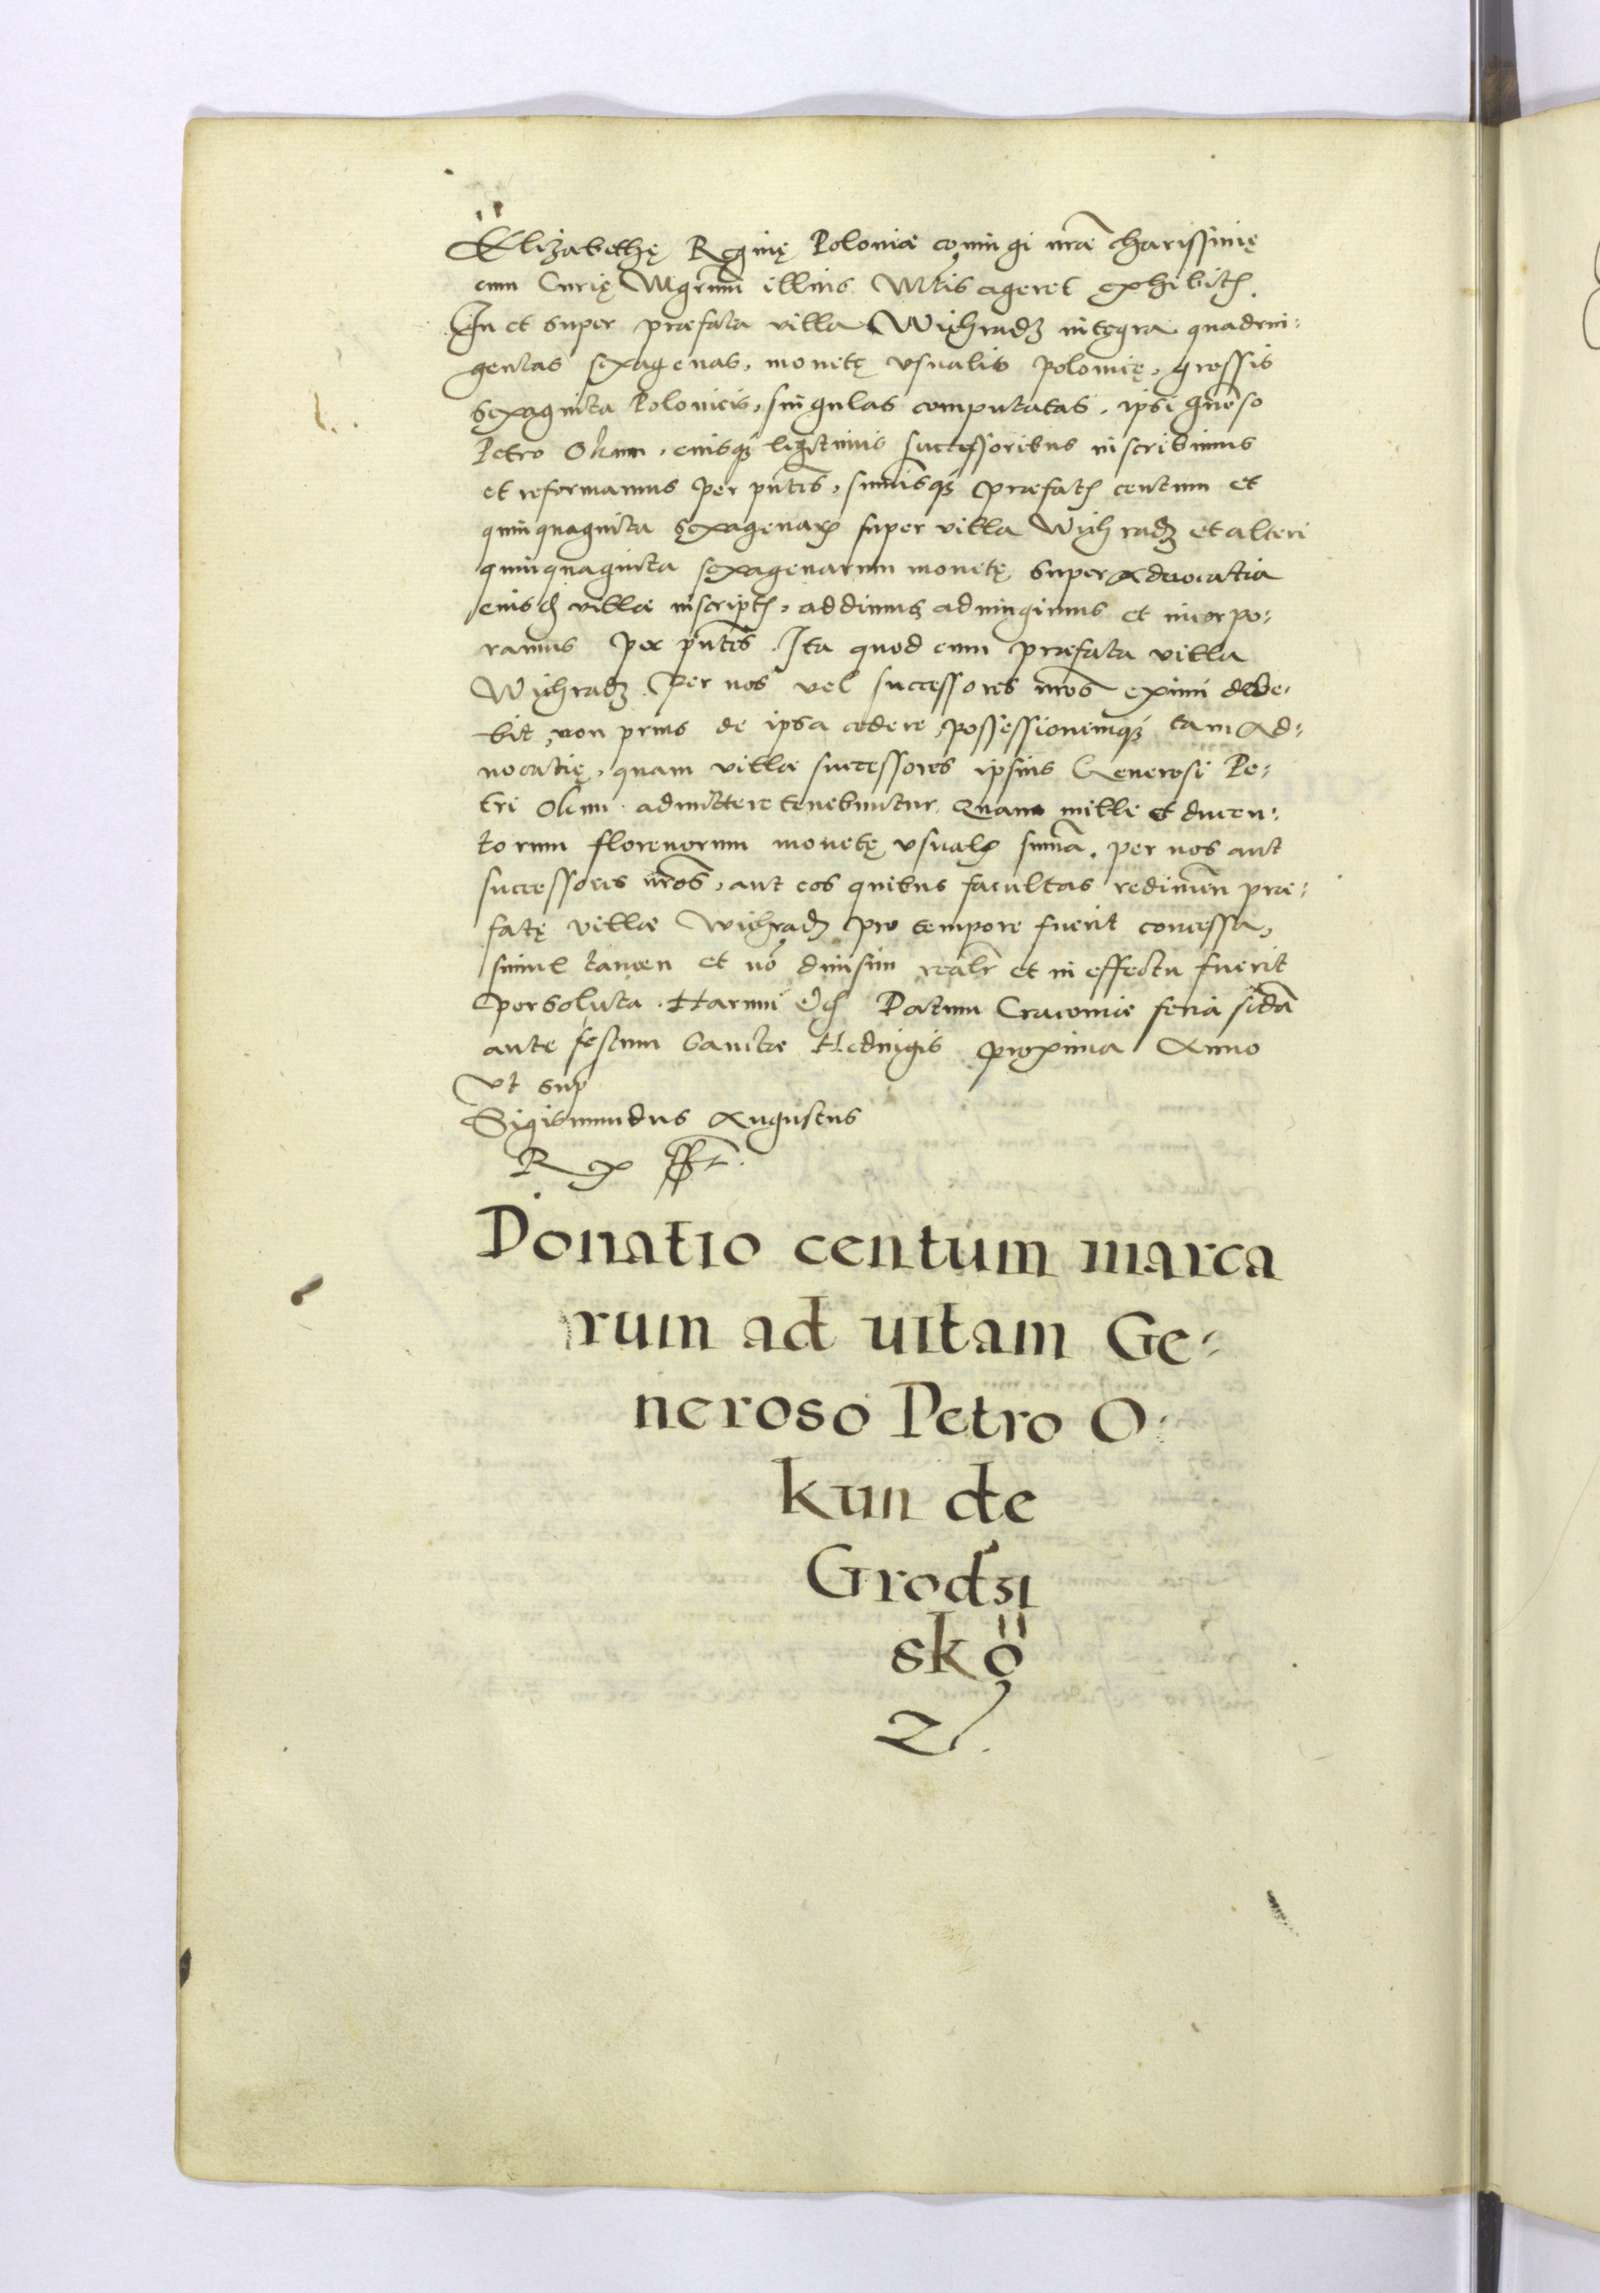 Elizabethę Reginę Poloniæ coniungi nr̃æ charissimę
cum Curię Mgrum̃ illius Mt̃is ageret exhibit
In et super præfata villa Wyhradz integra quadrin:
gentas sexagenas, monetę vsualis polonię, grossis
sexaginta Polonicis, singulas computatas, ipsi gnẽso
Petro Okun, eiusq3 legittimis successoribus inscribimus
et reformamus per pñtes, summisq3 præfat centum et
quinquaginta sexagenar super villa Wyhradz et alteri
quinquaginta sexagenarum monetę super Aduocatia
eiusd villæ inscript, addimus adiungimus et incorpo:
ramus per pñtes. Ita quod cum præfata villa
Wyhradz per nos vel successores nr̃os eximi debe:
bit, non prius de ipsa cedere, possessionemq3 tam Ad:
uocatię, quam villæ successores ipsius Generosi Pe:
tri Okun admittere tenebuntur. Quam mille et ducen:
torum florenorum monetę vsual sum̃a, per nos aut
successores nr̃os, aut eos quibus facultas redimen præ:
fatę villæ Wyhradz pro tempore fuerit concessa,
simul tamen et nõ diuisim realr et in effectu fuerit
persoluta. Harum Datum Cracouiæ feria sc̃da
ante festum Sanctæ Hedwigis proxima Anno
Vt sup
Sigismundus Augustus
Rex sst.
Donatio centum marca
rum ad uitam Ge:
neroso Petro O:
kun de
Grodzi
sko